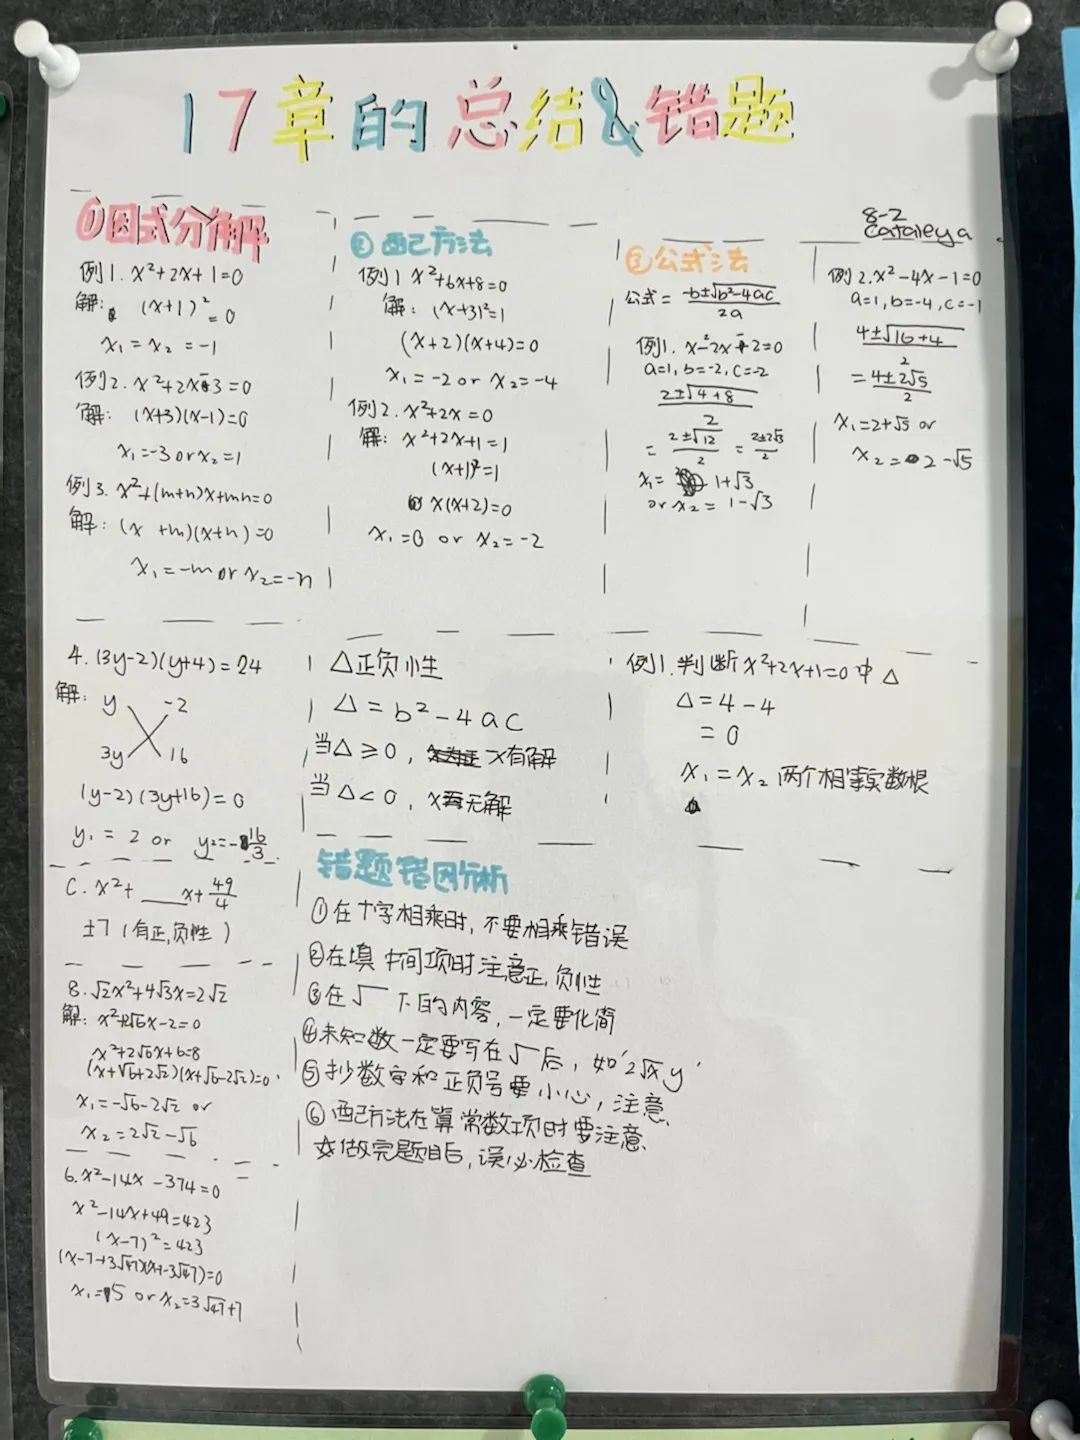 17章的总结&错题
8-2
Cataleya
①因式分解
例1. x²+2x+1=0
解: (x+1)²=0
x₁=x₂=-1
例2. x²+2x-3=0
解: (x+3)(x-1)=0
x₁=-3 or x₂=1
例3. x²+(m+n)x+mn=0
解: (x+m)(x+n)=0
x₁=-m or x₂=-n
②配方法
例1 x²+6x+8=0
解: (x+3)²=1
(x+2)(x+4)=0
x₁=-2 or x₂=-4
例2. x²+2x=0
解: x²+2x+1=1
(x+1)²=1
x(x+2)=0
x₁=0 or x₂=-2
③公式法
公式= -b±√b²-4ac / 2a
例1. x²-2x-2=0
a=1, b=-2, c=-2
2±√4+8 / 2
= 2±√12 / 2 = 2±2√3 / 2
x₁= 1+√3
or x₂= 1-√3
例2. x²-4x-1=0
a=1, b=-4, c=-1
4±√16+4 / 2
= 4±2√5 / 2
x₁=2+√5 or
x₂=2-√5
4. (3y-2)(y+4)=24
解: y -2
3y 16
(y-2)(3y+16)=0
y₁=2 or y₂=-16/3
△正负性
△=b²-4ac
当△≥0, x有解
当△<0, x无解
例1. 判断x²+2x+1=0中△
△=4-4
=0
x₁=x₂ 两个相等实数根
C. x²+___x+49/4
±7 (有正,负性)
8. √2x²+4√3x=2√2
解: x²+2√6x-2=0
x²+2√6x+6=8
(x+√6+2√2)(x+√6-2√2)=0
x₁=-√6-2√2 or
x₂=2√2-√6
6. x²-14x-374=0
x²-14x+49=423
(x-7)²=423
(x-7+3√47)(x-3√47)=0
x₁=5 or x₂=3√47+7
错题错因分析
①在十字相乘时, 不要相乘错误
②在填中间项时注意正,负性
③在√ 下的内容, 一定要化简
④未知数一定要写在√后, 如'2√x y'
⑤抄数字和正负号要小心, 注意
⑥配方法在算常数项时要注意
☆做完题目后, 误必检查